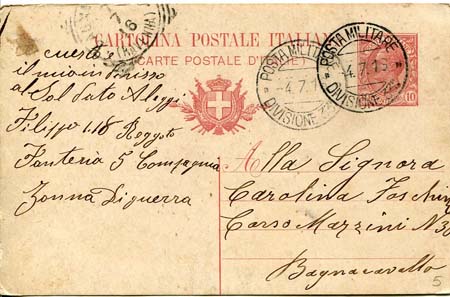 CARTOLINA POSTALE ITALIANA
(CARTE POSTALE D'ITALIE)
POSTA MILITARE
-4.7.1
DIVISIONE
POSTA MILITARE
-4.7.15
DIVISIONE
10
questo
il mio indirisso
al Soldato Aleggi
Filippo 118 Reggoto
Fanteria 5 Compagnia
Zonna Diguerra
Alla Signora
Carolina Foschini
Corso Mazzini N 36
Bagnacavallo
5